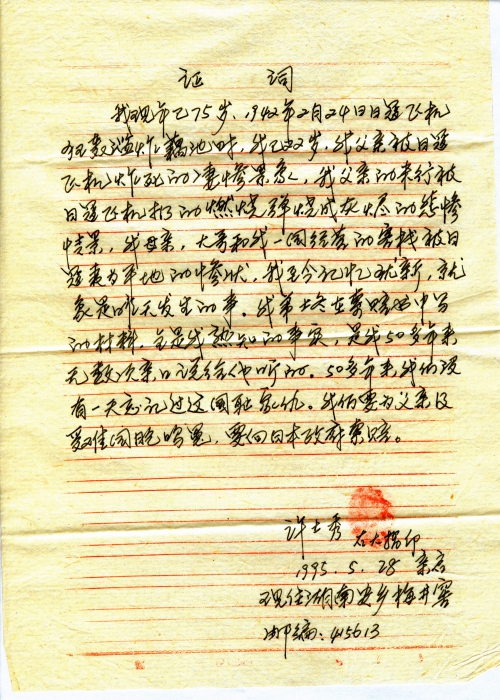 证 词
我现年已75岁、1942年2月24日日寇飞机
狂轰滥炸藕池时，我已22岁，我父亲被日寇
飞机炸死的凄惨景象，我父亲的米行被
日寇飞机扔的燃烧弹烧成灰烬的悲惨
情景，我母亲，大哥和我一同经营的客栈被日
寇夷为平地的惨状，我至今记忆犹新，就
象是昨天发生的事。我弟 在 中写
的材料，全是我熟知的事实，是我50多年来
无数次亲口说给他听的。50多年来我们没
有一天忘记过这国耻家仇。我们要为父亲及
受难同胞鸣冤，要向日本政府索赔。
许士秀 右大拇印
1995.5.28 亲言
现住湖南安乡 井窖
邮编：415613